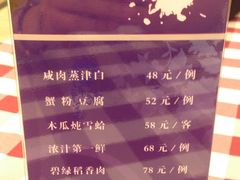 咸肉蒸津白 48元/例
蟹粉豆腐 52元/例
木瓜炖雪蛤 58元/客
浓汁第一鲜 68元/例
碧绿稻香肉 78元/例